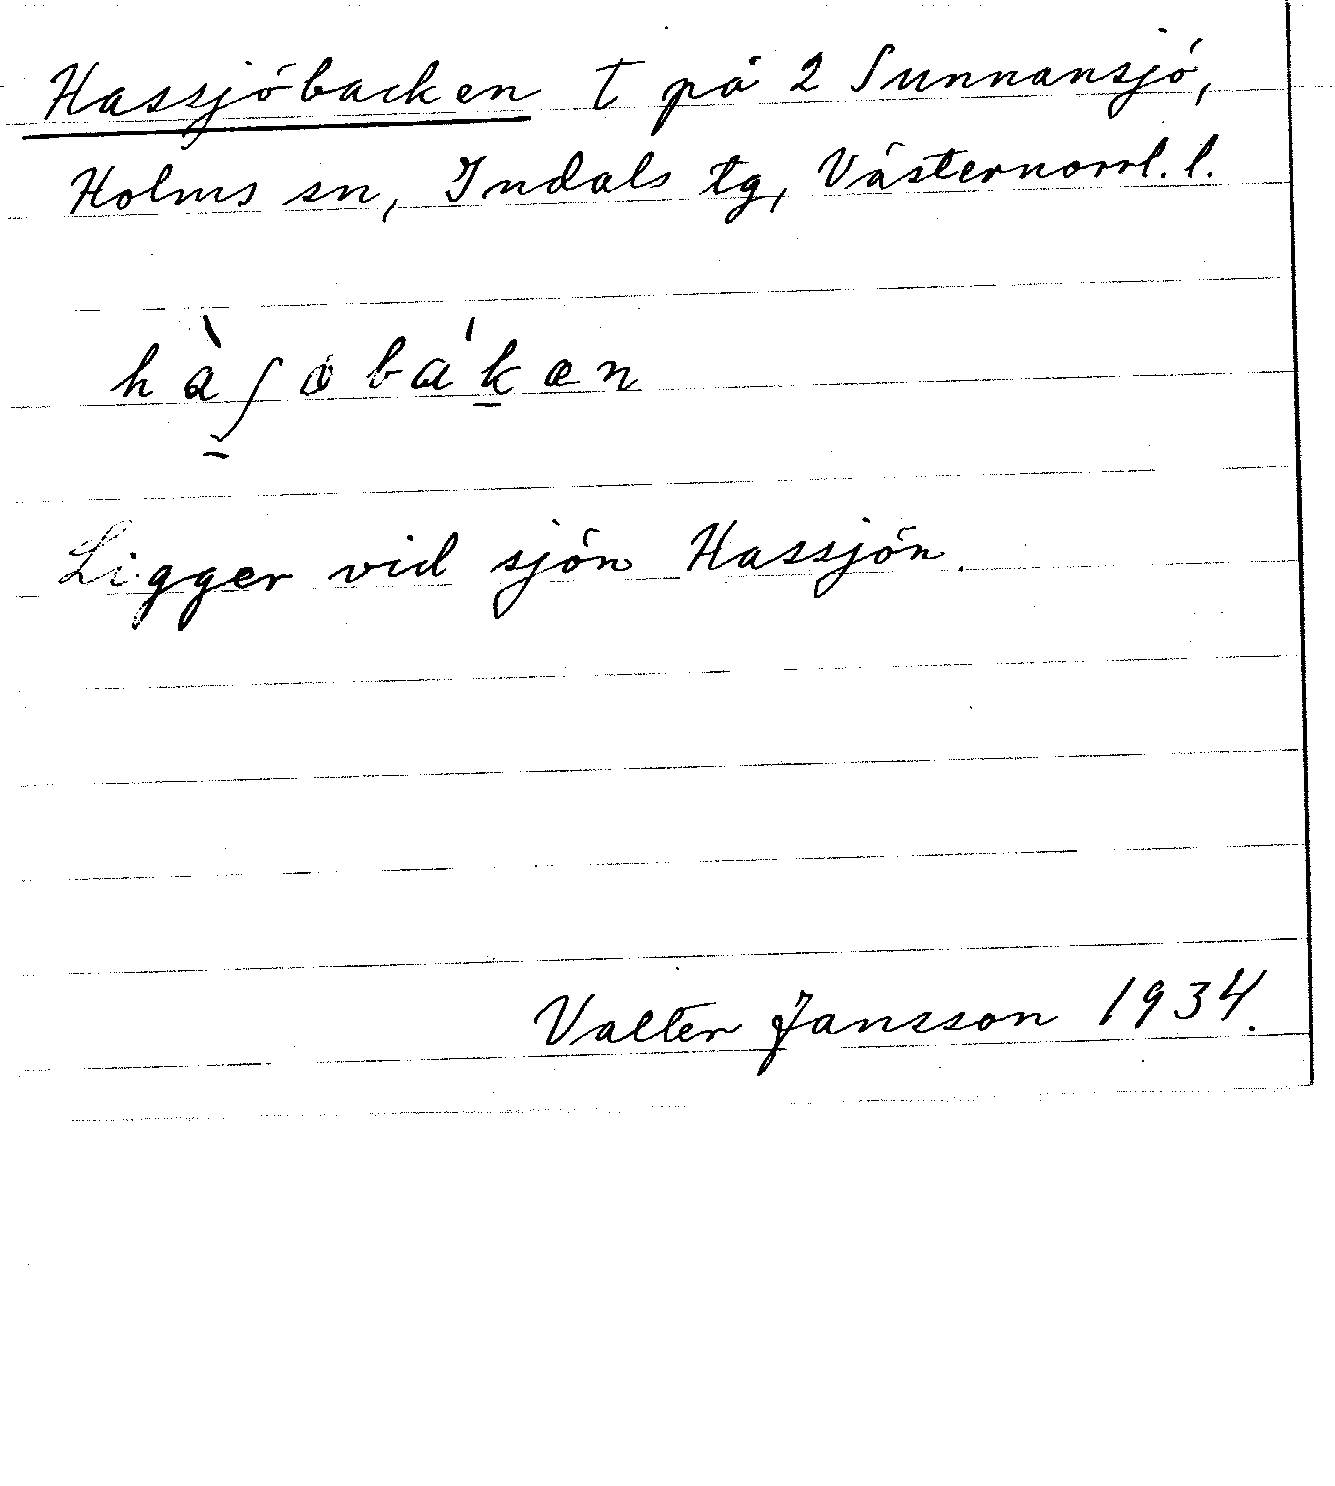 Hassjöbacken t på 2 Sunnansjö,
Holms sn, Indals tg, Västernorrl. l.
hàʃøbáken
Ligger vid sjön Hassjön.
Valter Jansson 1934.